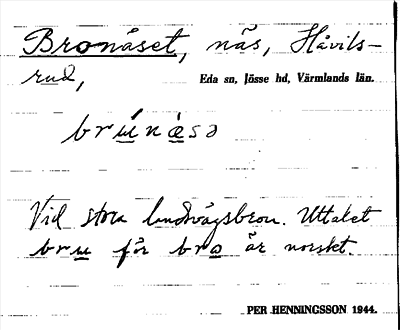 Bronäset, näs, Håvils-
rud, Eda sn, Jösse hd, Värmlands län.
brúnæ̀sə
Vid stora landsvägsbron. Uttalet
bru för bro är norskt.
PER HENNINGSSON 1944.